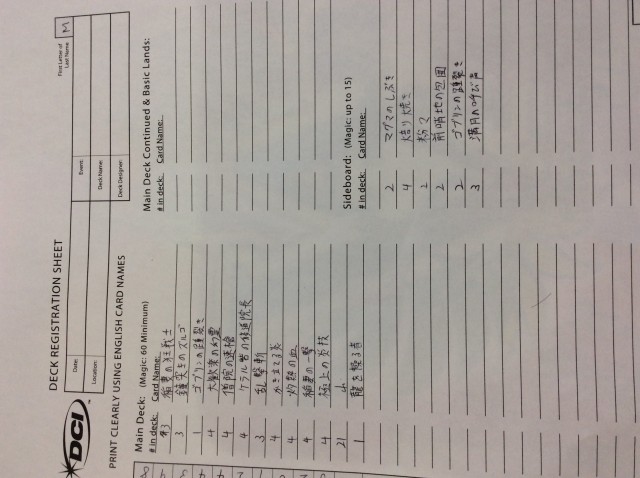 DCI
DECK REGISTRATION SHEET
First Letter of
Last Name: M
Date:
Event:
Location:
Deck Name:
Deck Designer:
PRINT CLEARLY USING ENGLISH CARD NAMES
Main Deck: (Magic: 60 Minimum)
# in deck: Card Name:
3 稲妻の狂戦士
3 鐘突きのズルゴ
1 ゴブリンの踵裂き
4 大歓楽の幻霊
4 僧院の速槍
4 ケラル砦の修道院長
3 乱撃斬
4 かき立てる炎
4 灼熱の血
4 稲妻の一撃
4 極上の炎技
21 山
1 龍を操る者
Main Deck Continued & Basic Lands:
# in deck: Card Name:
Sideboard: (Magic: up to 15)
# in deck: Card Name:
2 マグマのしぶき
4 焙り焼き
2 粉々
2 前哨地の包囲
2 ゴブリンの踵裂き
3 満月の呼び声